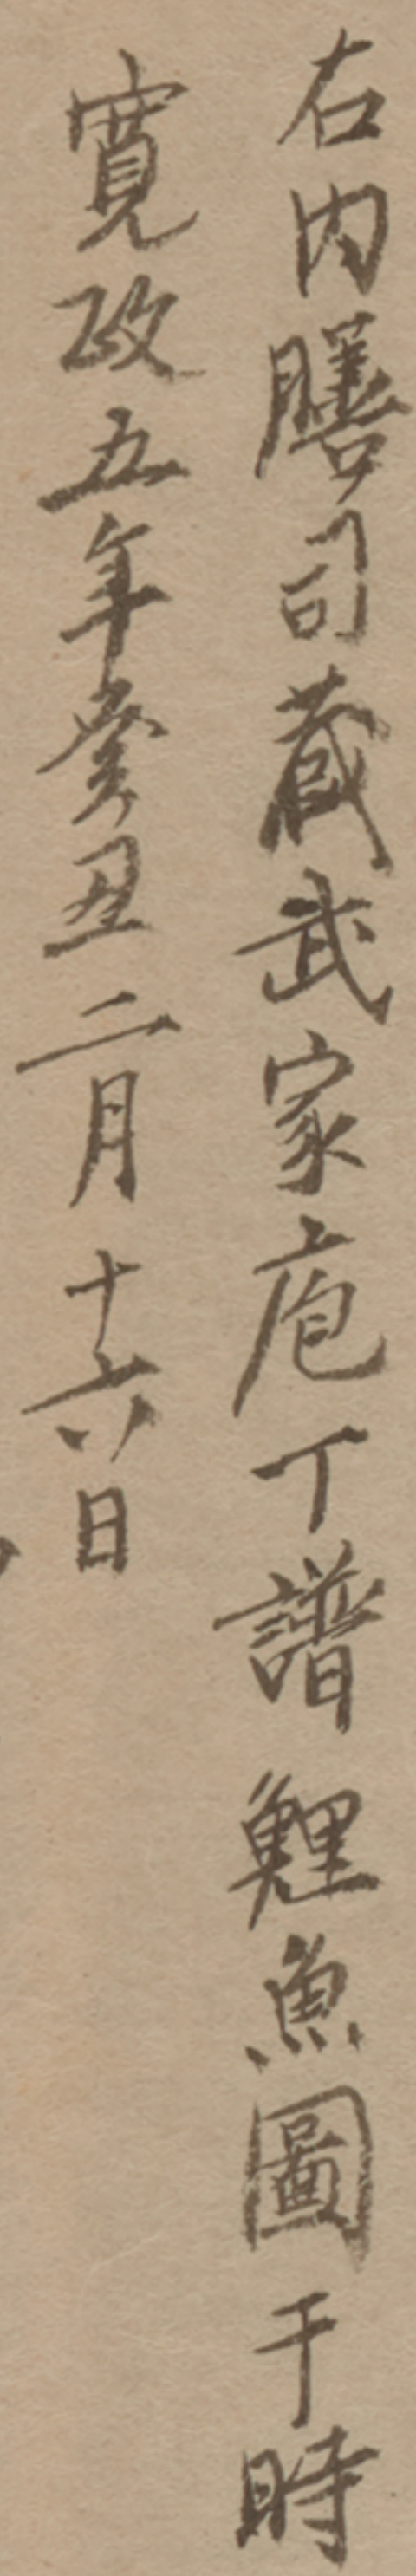 右内膳司蔵武家庖丁譜鯉魚圖于時
寛政五年癸丑二月十六日